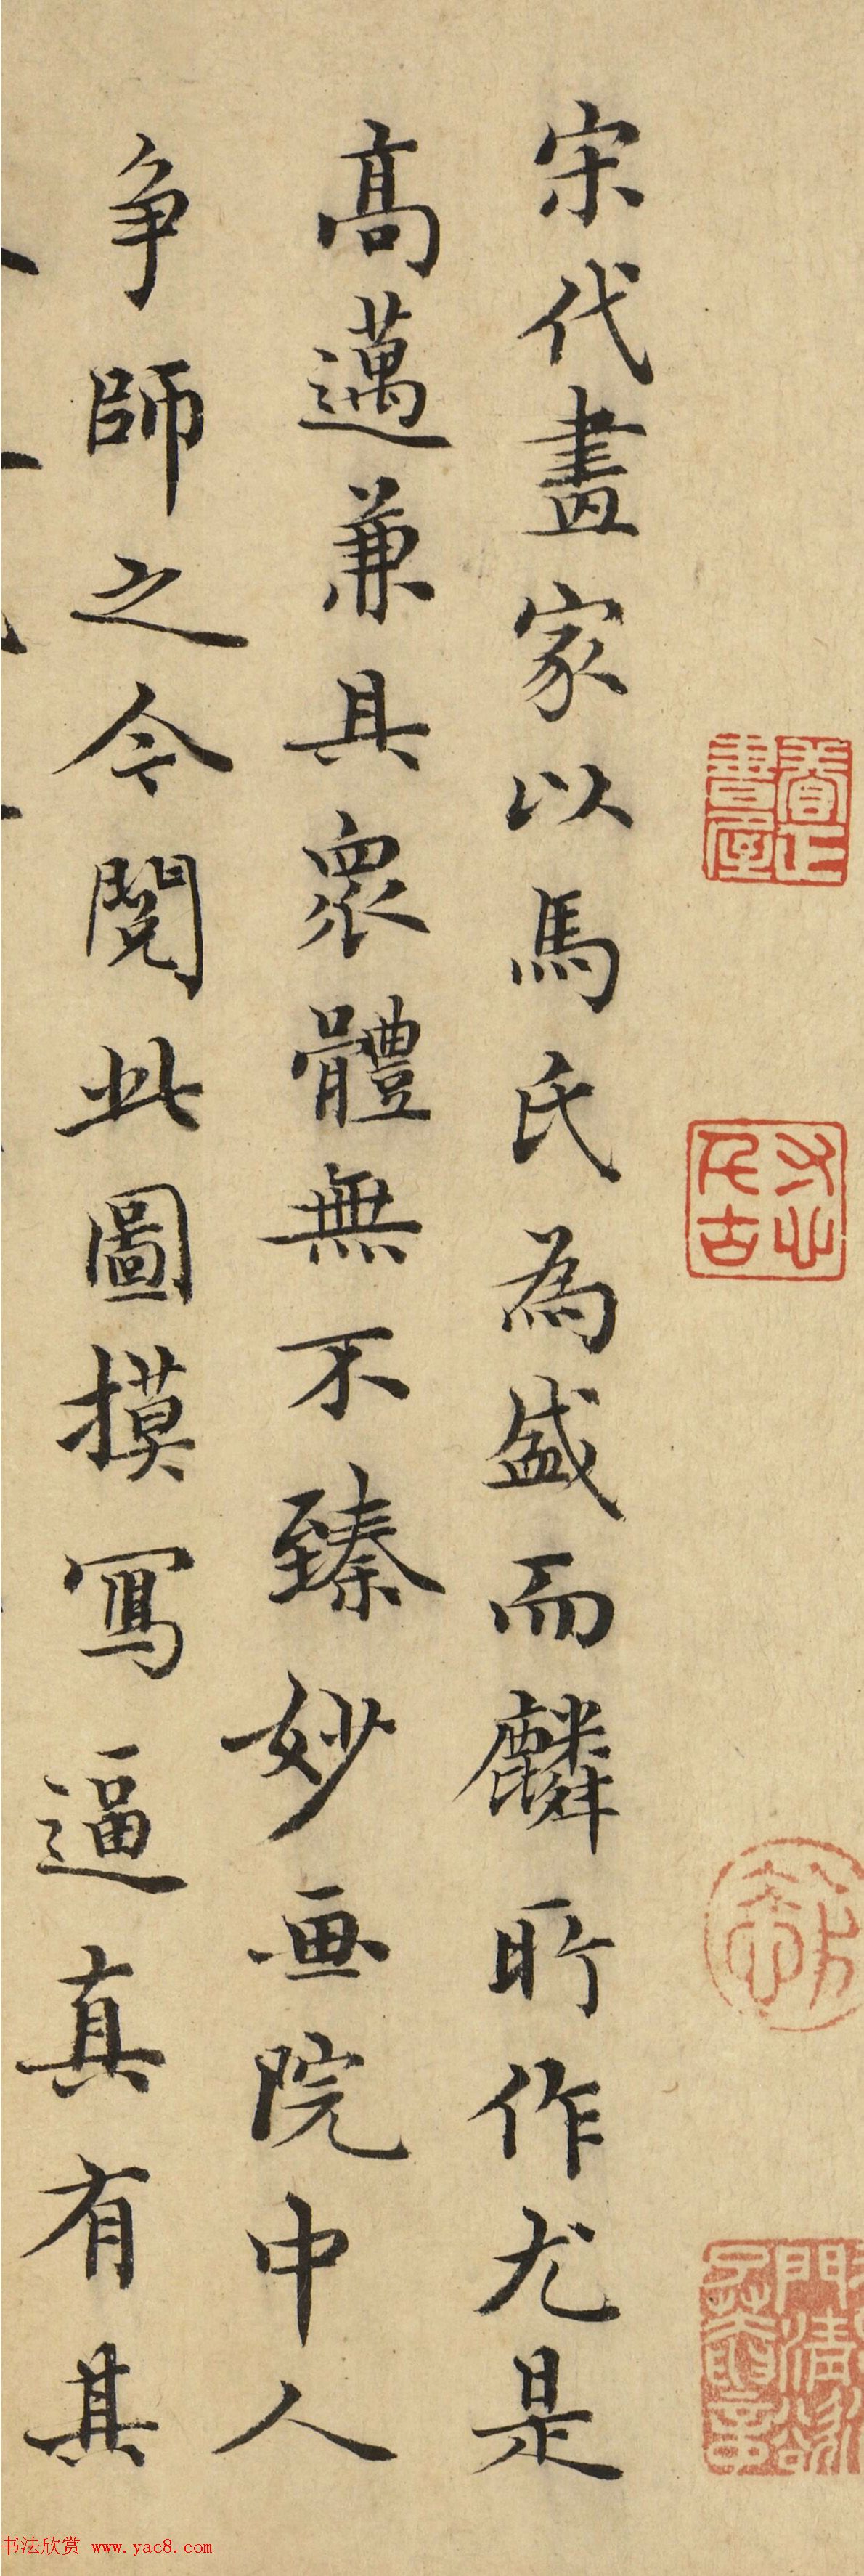 宋代畫家以馬氏為盛而麟所作尤是
高邁兼具衆體無不臻妙画院中人
争師之今閱此圖摸寫逼真有其
书法欣赏 www.yac8.com